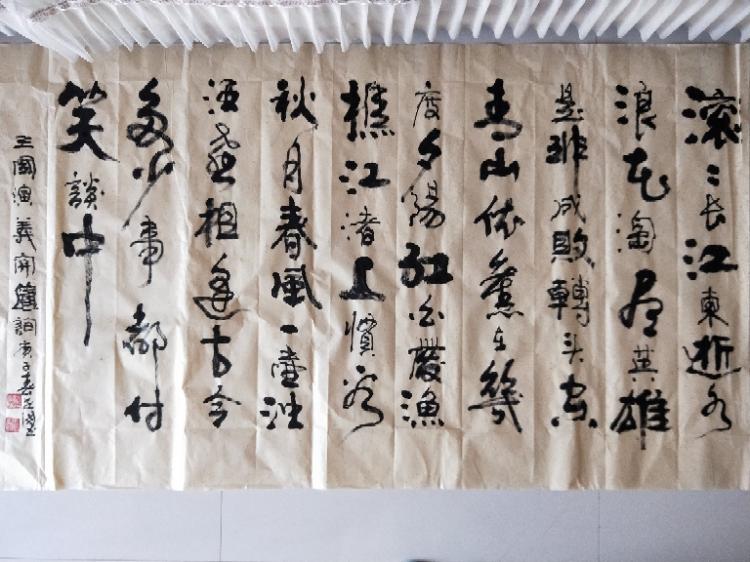 滚〻长江東逝水
浪花淘尽英雄
是非成敗轉头空
青山依舊在幾
度夕陽红白髮漁
樵江渚上慣看
秋月春風一壶浊
酒喜相逢古今
多少事都付
笑談中
三國演義開篇詞庚子春